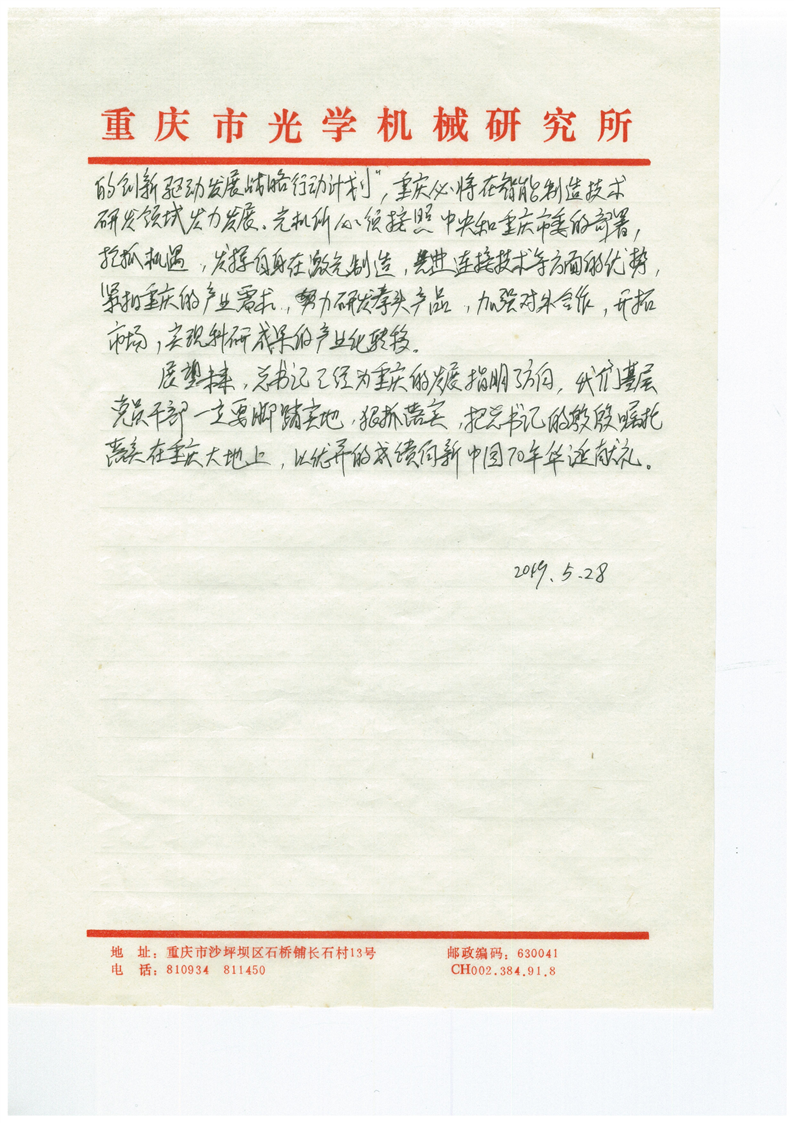 重庆市光学机械研究所
的创新驱动发展战略行动计划”,重庆必将在智能制造技术
研发领域发力发展。光机所必须按照中央和重庆市委的部署,
抢抓机遇,发挥自身在激光制造,连接技术等方面的优势,
紧扣重庆的产业需求,努力研发拳头产品,加强对外合作,开拓
市场,实现科研成果的产业化转移。
展望未来,总书记已经为重庆的发展指明了方向,我们基层
党员干部一定要脚踏实地,狠抓落实,把总书记的殷殷嘱托
落实在重庆大地上,以优异的成绩向新中国70年华诞献礼。
2019.5.28
地 址:重庆市沙坪坝区石桥铺长石村13号 邮政编码:630041
电 话:810934 811450 CH002.384.91.8